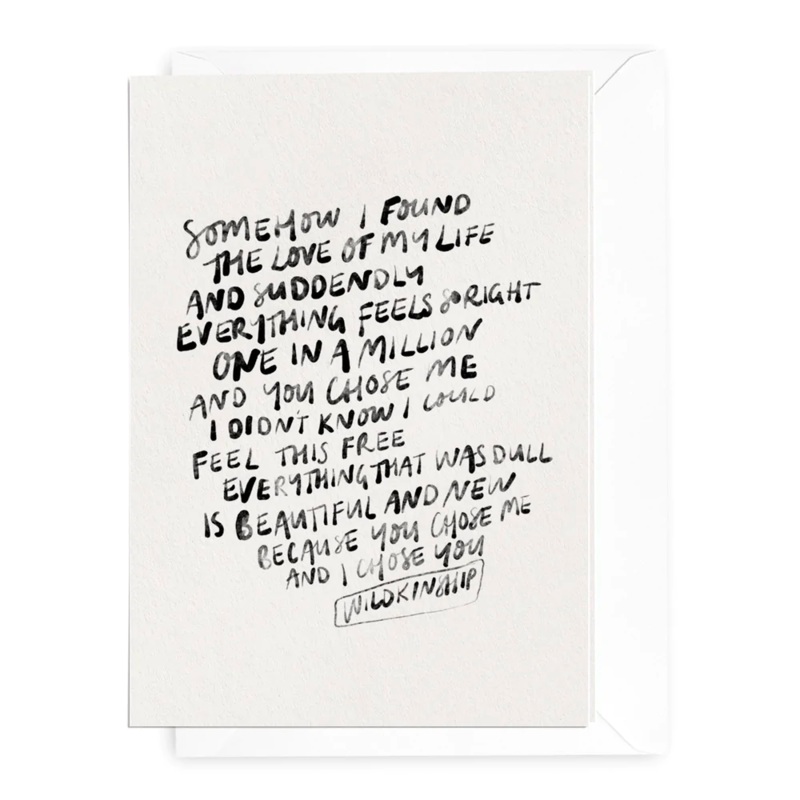 SOMEHOW I FOUND
THE LOVE OF MY LIFE
AND SUDDENDLY
EVERYTHING FEELS SO RIGHT
ONE IN A MILLION
AND YOU CHOSE ME
I DIDN'T KNOW I COULD
FEEL THIS FREE
EVERYTHING THAT WAS DULL
IS BEAUTIFUL AND NEW
BECAUSE YOU CHOSE ME
AND I CHOSE YOU
WILDKINSHIP